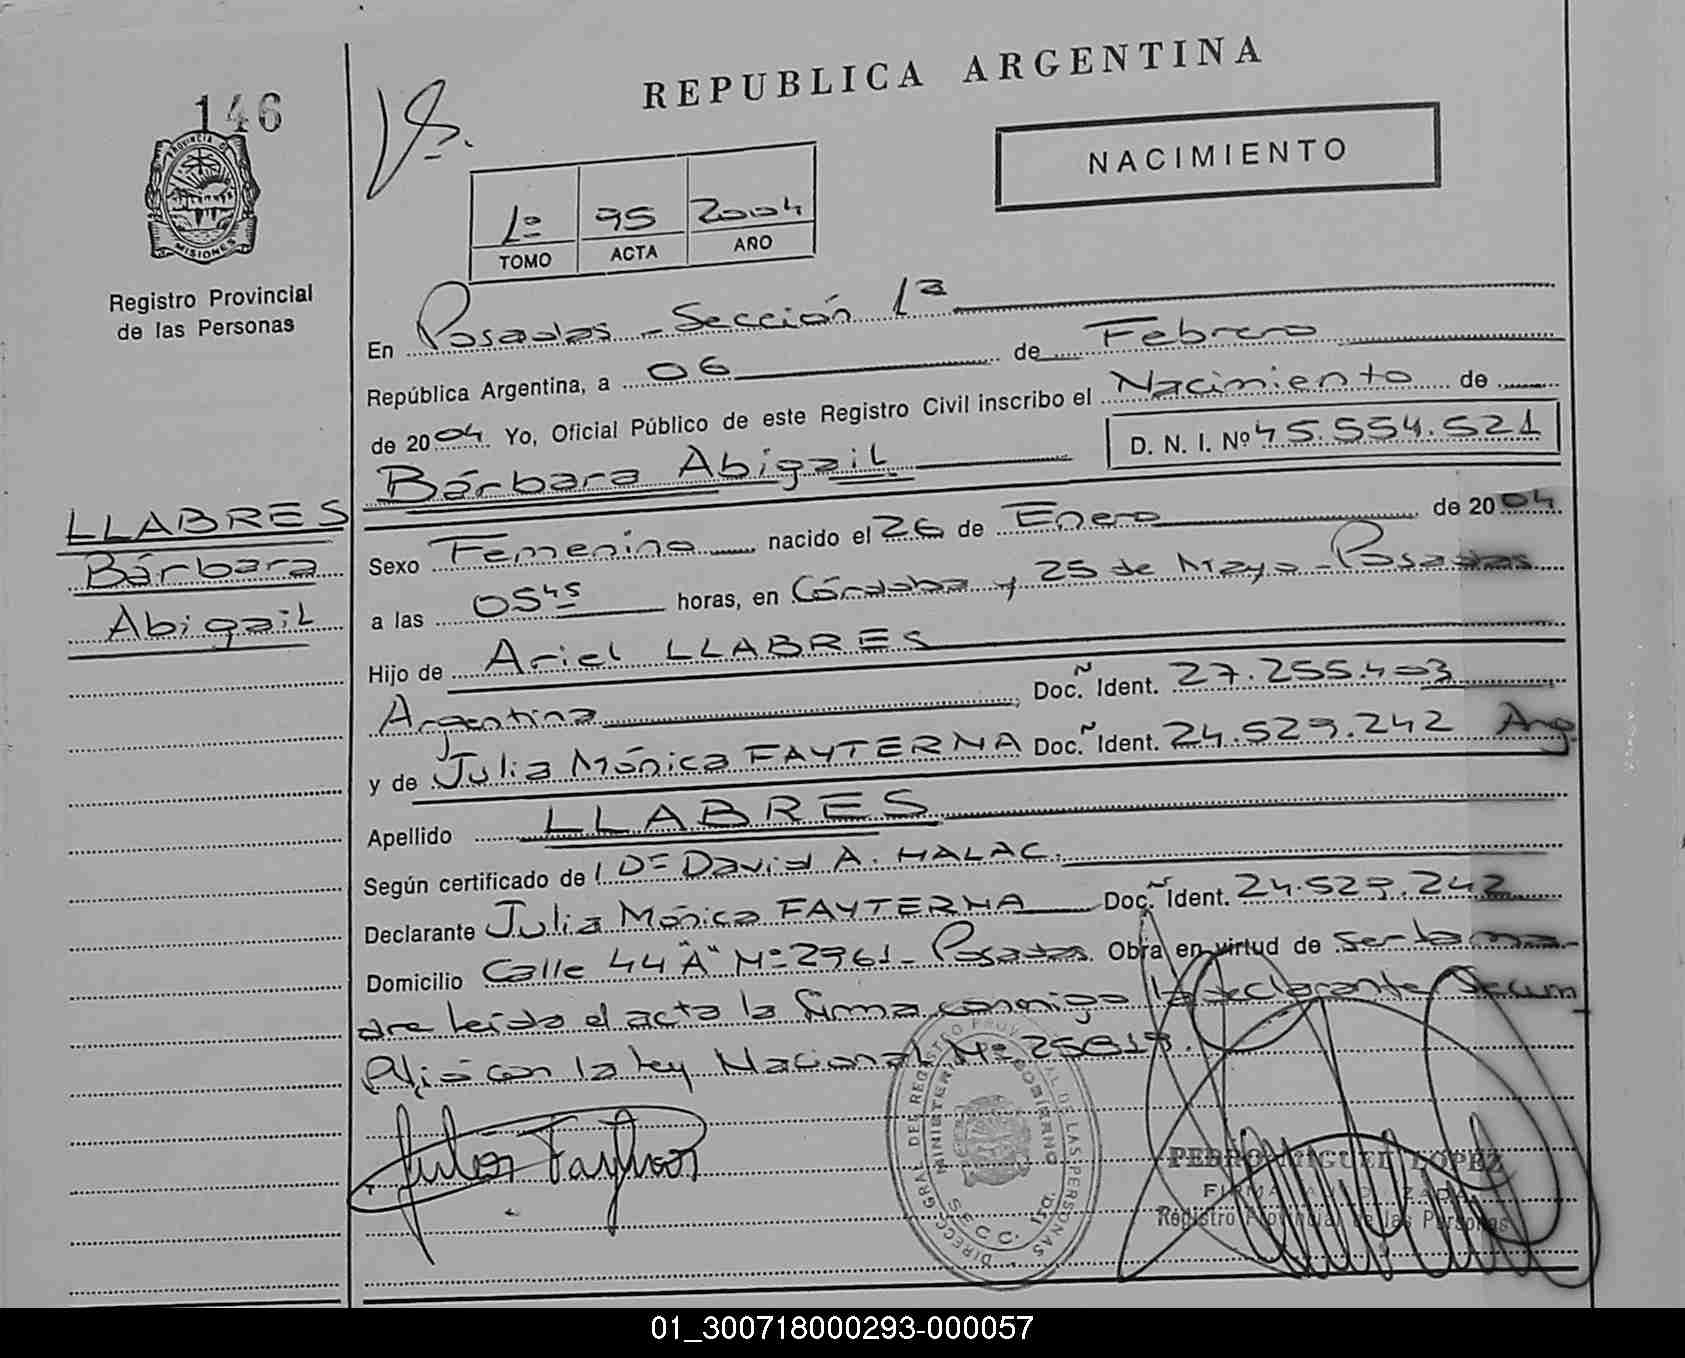 REPUBLICA ARGENTINA
146
NACIMIENTO
PROVINCIA DE
MISIONES
Registro Provincial
de las Personas
1º 95 2004
TOMO ACTA AÑO
En Posadas - Sección 1ª
República Argentina, a 06 de Febrero
de 2004 Yo, Oficial Público de este Registro Civil inscribo el Nacimiento de
D. N. I. Nº 45.554.521
Bárbara Abigail
LLABRES
Bárbara
Abigail
Sexo Femenino nacido el 26 de Enero de 2004
a las 05⁴⁵ horas, en Córdoba y 25 de Mayo - Posadas
Hijo de Ariel LLABRES
Argentina Doc. Ident. 27.255.403
y de Julia Mónica FAYTERNA Doc. Ident. 24.529.242 Arg
Apellido LLABRES
Según certificado de David A. HALAC.
Declarante Julia Mónica FAYTERNA Doc. Ident. 24.529.242
Domicilio Calle 44 "A" Nº 2961 - Posadas. Obra en virtud de ser la ma-
dre leida el acta la firma conmigo la declarante Se cum
plió con la ley Nacional Nº
DIRECC. GRAL. DEL REGISTRO PROVINCIAL DE LAS PERSONAS
MINISTERIO GOBIERNO
SECC. 1RA.
PEDRO MIGUEL LOPEZ
FIRMA AUTORIZADA
Registro Provincial de las Personas
01_300718000293-000057